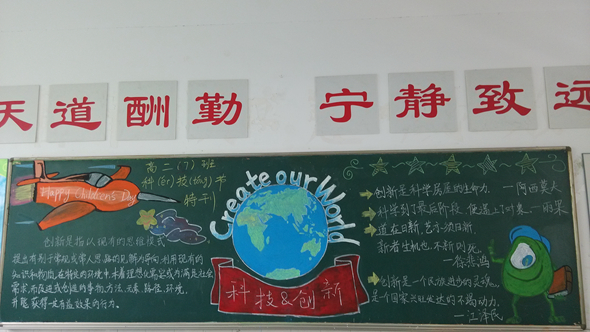 天道酬勤
宁静致远
高二(7)班
科(er)技(tong)节
特刊
Happy Children's Day
创新是指以现有的思维模式
提出有别于常规或常人思路的见解为导向,利用现有的
知识和物质,在特定的环境中,本着理想化需要或为满足社会
需求,而改进或创造新的事物、方法、元素、路径、环境,
并能获得一定有益效果的行为。
Create our World
科技&创新
创新是科学房屋的生命力。—阿西莫夫
科学到了最后阶段,便遇上了想象。—雨果
道在日新,艺亦须日新,
新者生机也,不新则死。
—徐悲鸿
创新是一个民族进步的灵魂,
是一个国家兴旺发达的不竭动力。
—江泽民